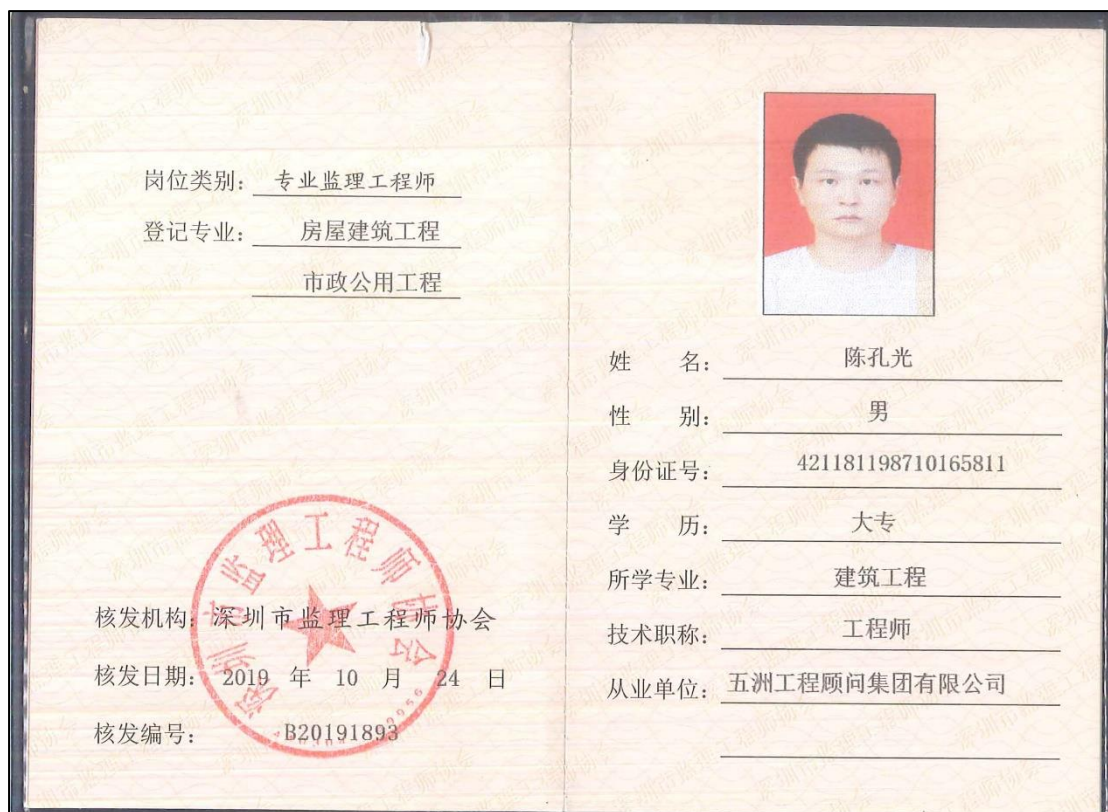 岗位类别： 专业监理工程师
登记专业： 房屋建筑工程
市政公用工程
核发机构：深圳市监理工程师协会
核发日期： 2019 年 10 月 24 日
核发编号： B20191893
深圳市监理工程师协会
姓 名： 陈孔光
性 别： 男
身份证号： 421181198710165811
学 历： 大专
所学专业： 建筑工程
技术职称： 工程师
从业单位： 五洲工程顾问集团有限公司